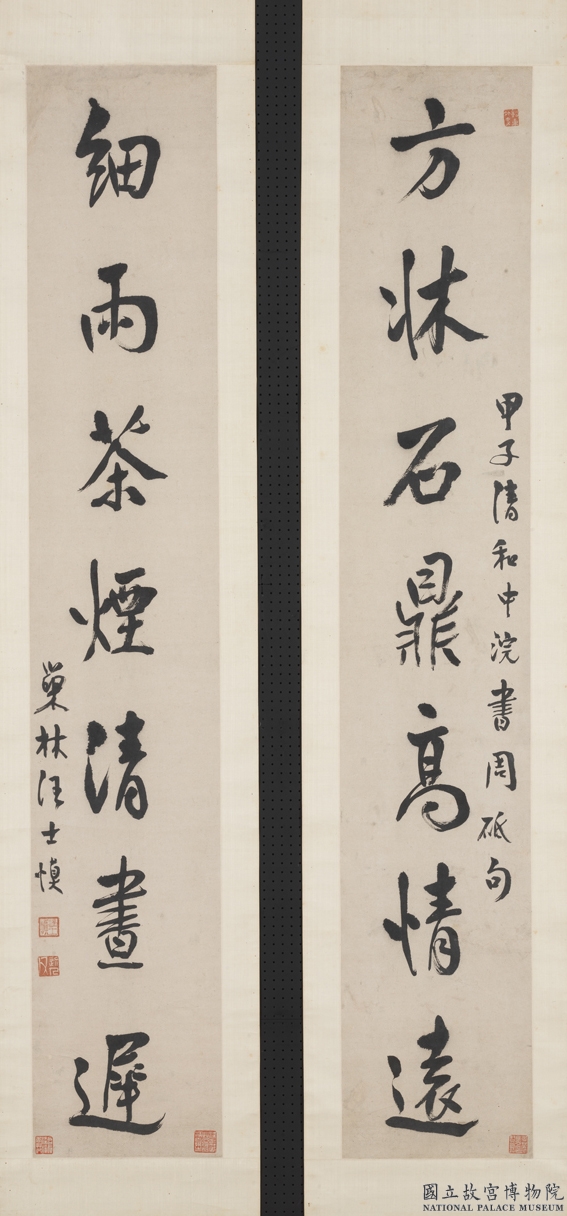 方牀石鼎高情遠
甲子清和中浣書周砥句
細雨茶煙清晝遲
巢林汪士慎
國立故宮博物院
NATIONAL PALACE MUSEUM